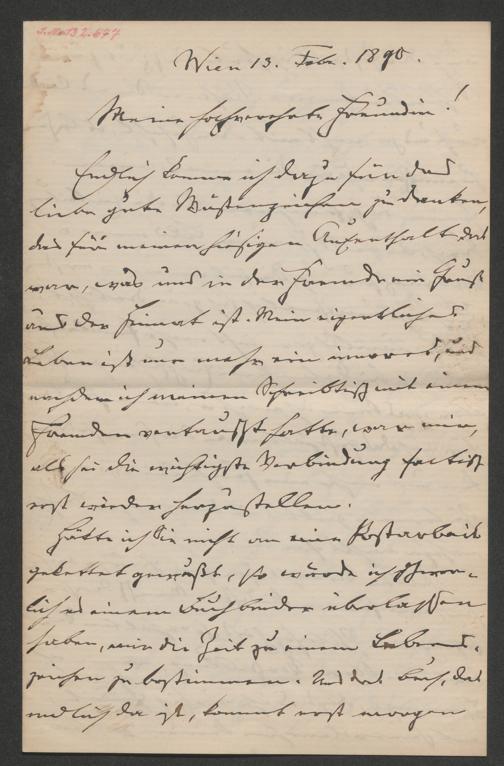 J. No 132.677
Wien 13. Febr. 1890.
Meine hochverehrte Freundin!
Endlich komme ich dazu für das
liebe gute zu danken,
das für meinen hiesigen Aufenthalt das
war, was uns in der Fremde ein Gruß
aus der Heimat ist. Mein eigentliches
Leben ist nur mehr ein inneres, und
nachdem ich meinen Schreibtisch mit einem
fremden vertauscht hatte, war mir,
als sei die wichtigste Verbindung factisch
erst wieder herzustellen.
Hätte ich Sie nicht an eine Postarbeit
gekettet gewußt, so würde ich schwer-
lich es einem Buchbinder überlassen
haben, mir die Zeit zu einem Lebens-
zeichen zu bestimmen. Und das Buch, das
endlich da ist, kommt erst morgen